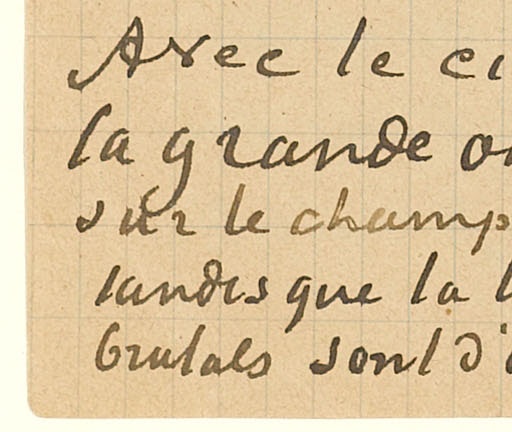 Avec le ci
la grande o
sur le champ
tandis que la l
brutals sont d'